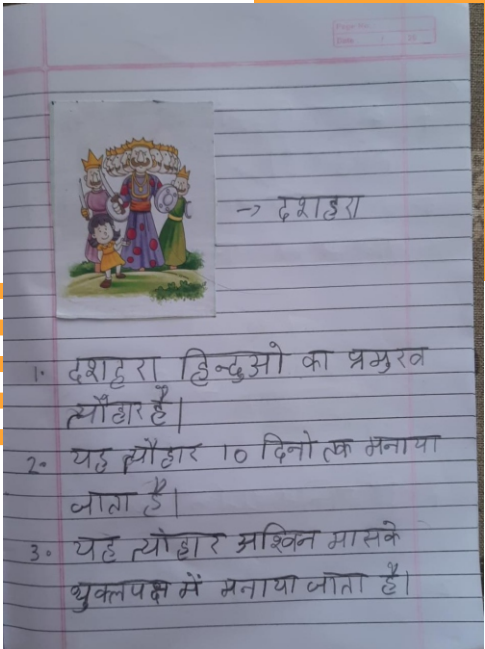 Page No.
Date
→ दशहरा
1. दशहरा हिन्दुओ का प्रमुख
त्यौहार है|
2. यह त्यौहार 10 दिनो तक मनाया
जाता है|
3. यह त्योहार अश्विन मासके
शुक्लपक्ष में मनाया जाता है|